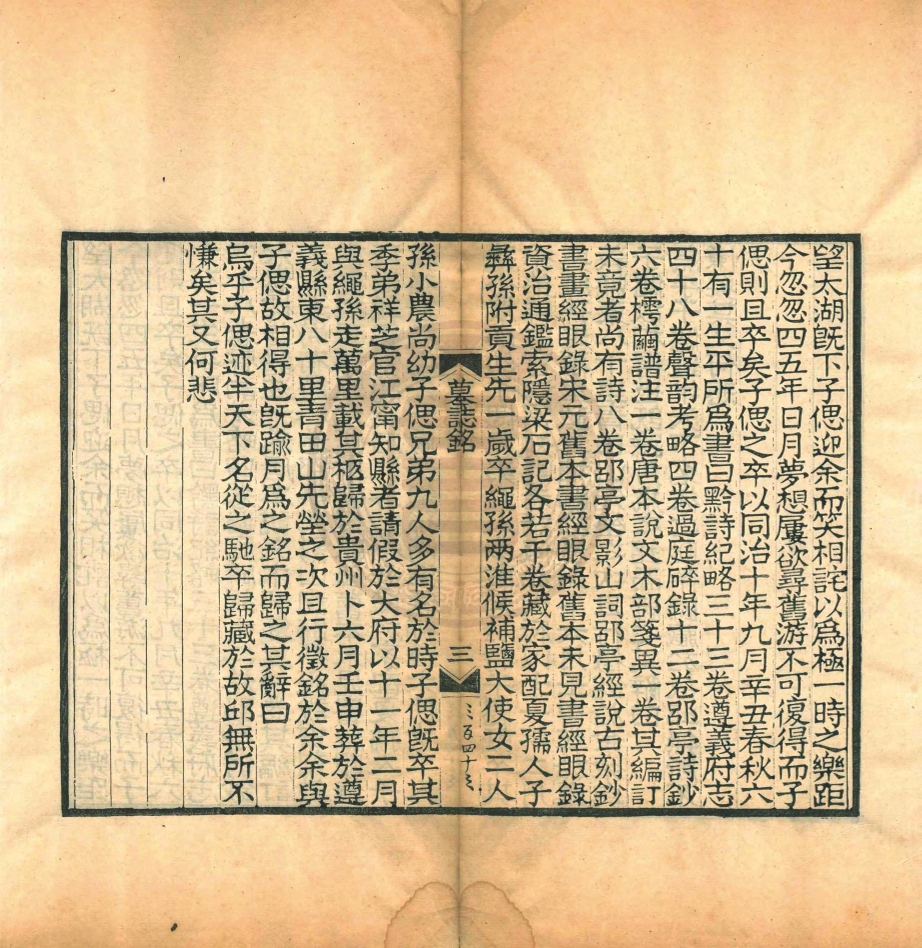 望太湖既下子偲迎余而笑相詫以爲極一時之樂距
今忽忽四五年日月夢想屢欲尋舊游不可復得而子
偲則且卒矣子偲之卒以同治十年九月辛丑春秋六
十有一生平所爲書曰黔詩紀略三十三卷遵義府志
四十八卷聲韵考略四卷過庭碎錄十二卷郘亭詩鈔
六卷樗繭譜注一卷唐本說文木部箋異一卷其編訂
未竟者尚有詩八卷郘亭文影山詞郘亭經說古刻鈔
書畫經眼錄宋元舊本書經眼錄舊本未見書經眼錄
資治通鑑索隱梁石記各若干卷藏於家配夏孺人子
彝孫附貢生先一歲卒繩孫兩淮候補鹽大使女二人
墓誌銘
三
孫小農尚幼子偲兄弟九人多有名於時子偲既卒其
季弟祥芝官江甯知縣者請假於大府以十一年二月
與繩孫走萬里載其柩歸於貴州卜六月壬申葬於遵
義縣東八十里青田山先塋之次且行徵銘於余余與
子偲故相得也既踰月爲之銘而歸之其辭曰
烏乎子偲迹半天下名從之馳卒歸藏於故邱無所不
慊矣其又何悲